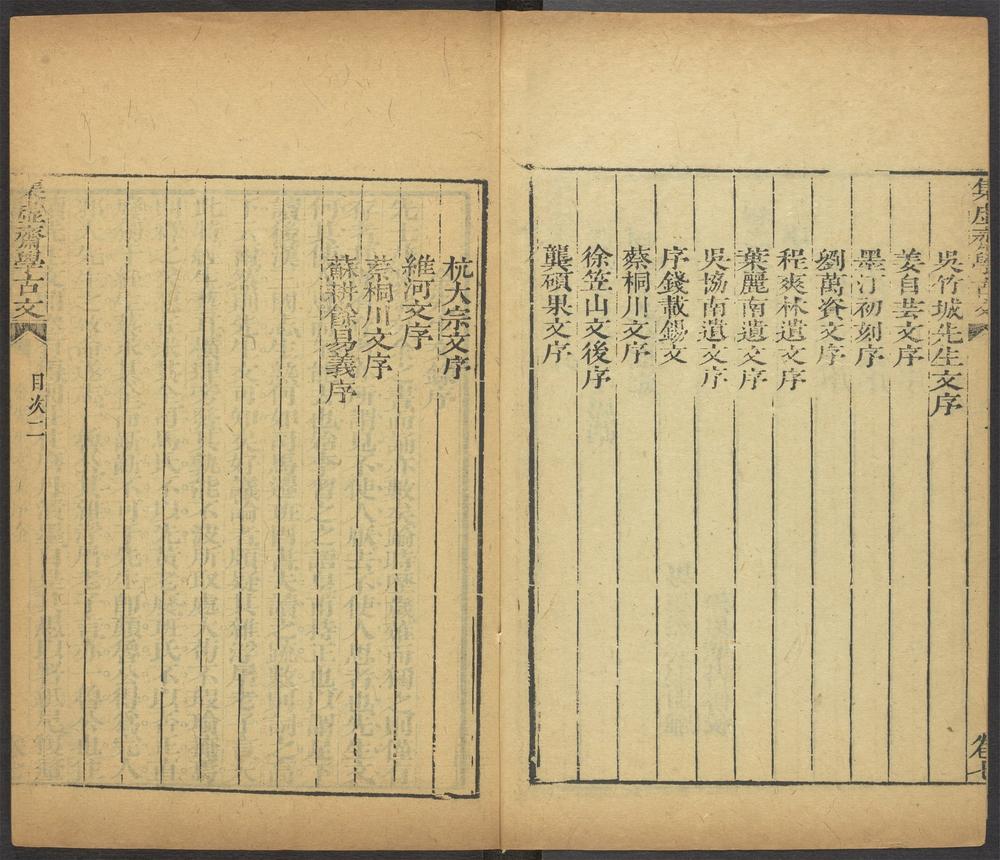 吳竹城先生文序
姜自芸文序
墨汀初刻序
劉萬資文序
程爽林遺文序
葉麗南遺文序
吳恊南遺文序
序錢載錫文
蔡桐川文序
徐笠山文後序
龔碩果文序
卷七
杭大宗文序
維河文序
蔡桐川文序
蘇耕餘易義序
集虛齋學古文
目次二